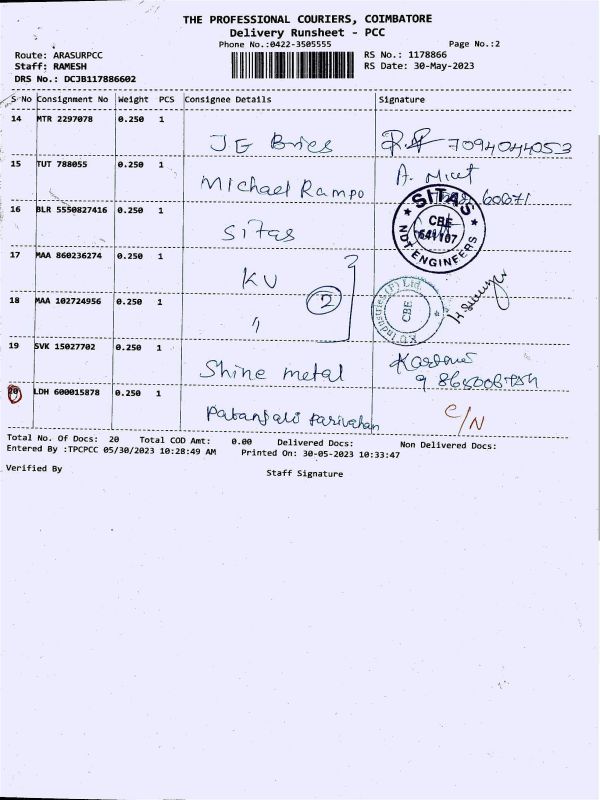 THE PROFESSIONAL COURIERS, COIMBATORE
Delivery Runsheet - PCC
Phone No.:0422-3505555 Page No.:2
Route: ARASURPCC RS No.: 1178866
Staff: RAMESH RS Date: 30-May-2023
DRS No.: DCJB117886602
S No Consignment No Weight PCS Consignee Details Signature
14 MTR 2297078 0.250 1 JE Bries 7094044053
15 TUT 788055 0.250 1 Michael Rampo A.
16 BLR 5550827416 0.250 1 Sitas SITAS CBE 641107 NDT ENGINEERS
17 MAA 860236274 0.250 1 KV
2
18 MAA 102724956 0.250 1 " Industries (P) Ltd CBE
19 SVK 15027702 0.250 1 Shine metal
20 LDH 600015878 0.250 1 Patanjali parivahan C/N
Total No. Of Docs: 20 Total COD Amt: 0.00 Delivered Docs: Non Delivered Docs:
Entered By :TPCPCC 05/30/2023 10:28:49 AM Printed On: 30-05-2023 10:33:47
Verified By Staff Signature